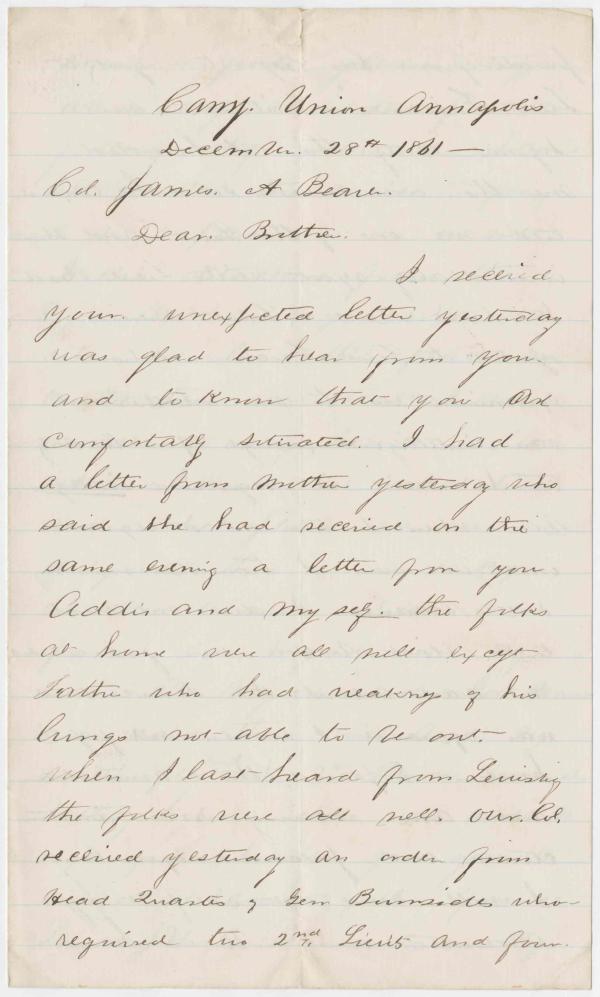 Camp. Union Annapolis
December. 28th 1861 —
Col. James. A Beaver.
Dear. Brother.
I received
your. unexpected letter yesterday
was glad to hear from you.
and to know that you are
comfortably situated. I had
a letter from Mother yesterday who
said she had received on the
same evening a letter from you
Addis and my self. the folks
at home were all well except
Father who had weakness of his
lungs not able to be out.
when I last heard from Lewisburg
the folks were all well. our. Col.
received yesterday an order from
Head Quarters of Gen Burnsides who
required two 2nd. Lieuts and four.